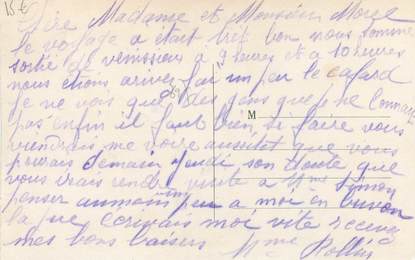 15€
Madame et Monsieur
le voyage a était trèt bon nous somme
sortie de vénissieux à 9 heures et a 10 heures
nous étions arriver j'ai un peu le cafard
je ne vois que des gens que je ne connait
pas enfin il faut bien si faire vous
M
viendrais me voire aussitôt que vous
pourais demain jeudi son doute que
vous irais rendre visite a Mme Simon
penser un peu a moi en buvant
écrivais moi vite recevez
mes bons baisers Mme